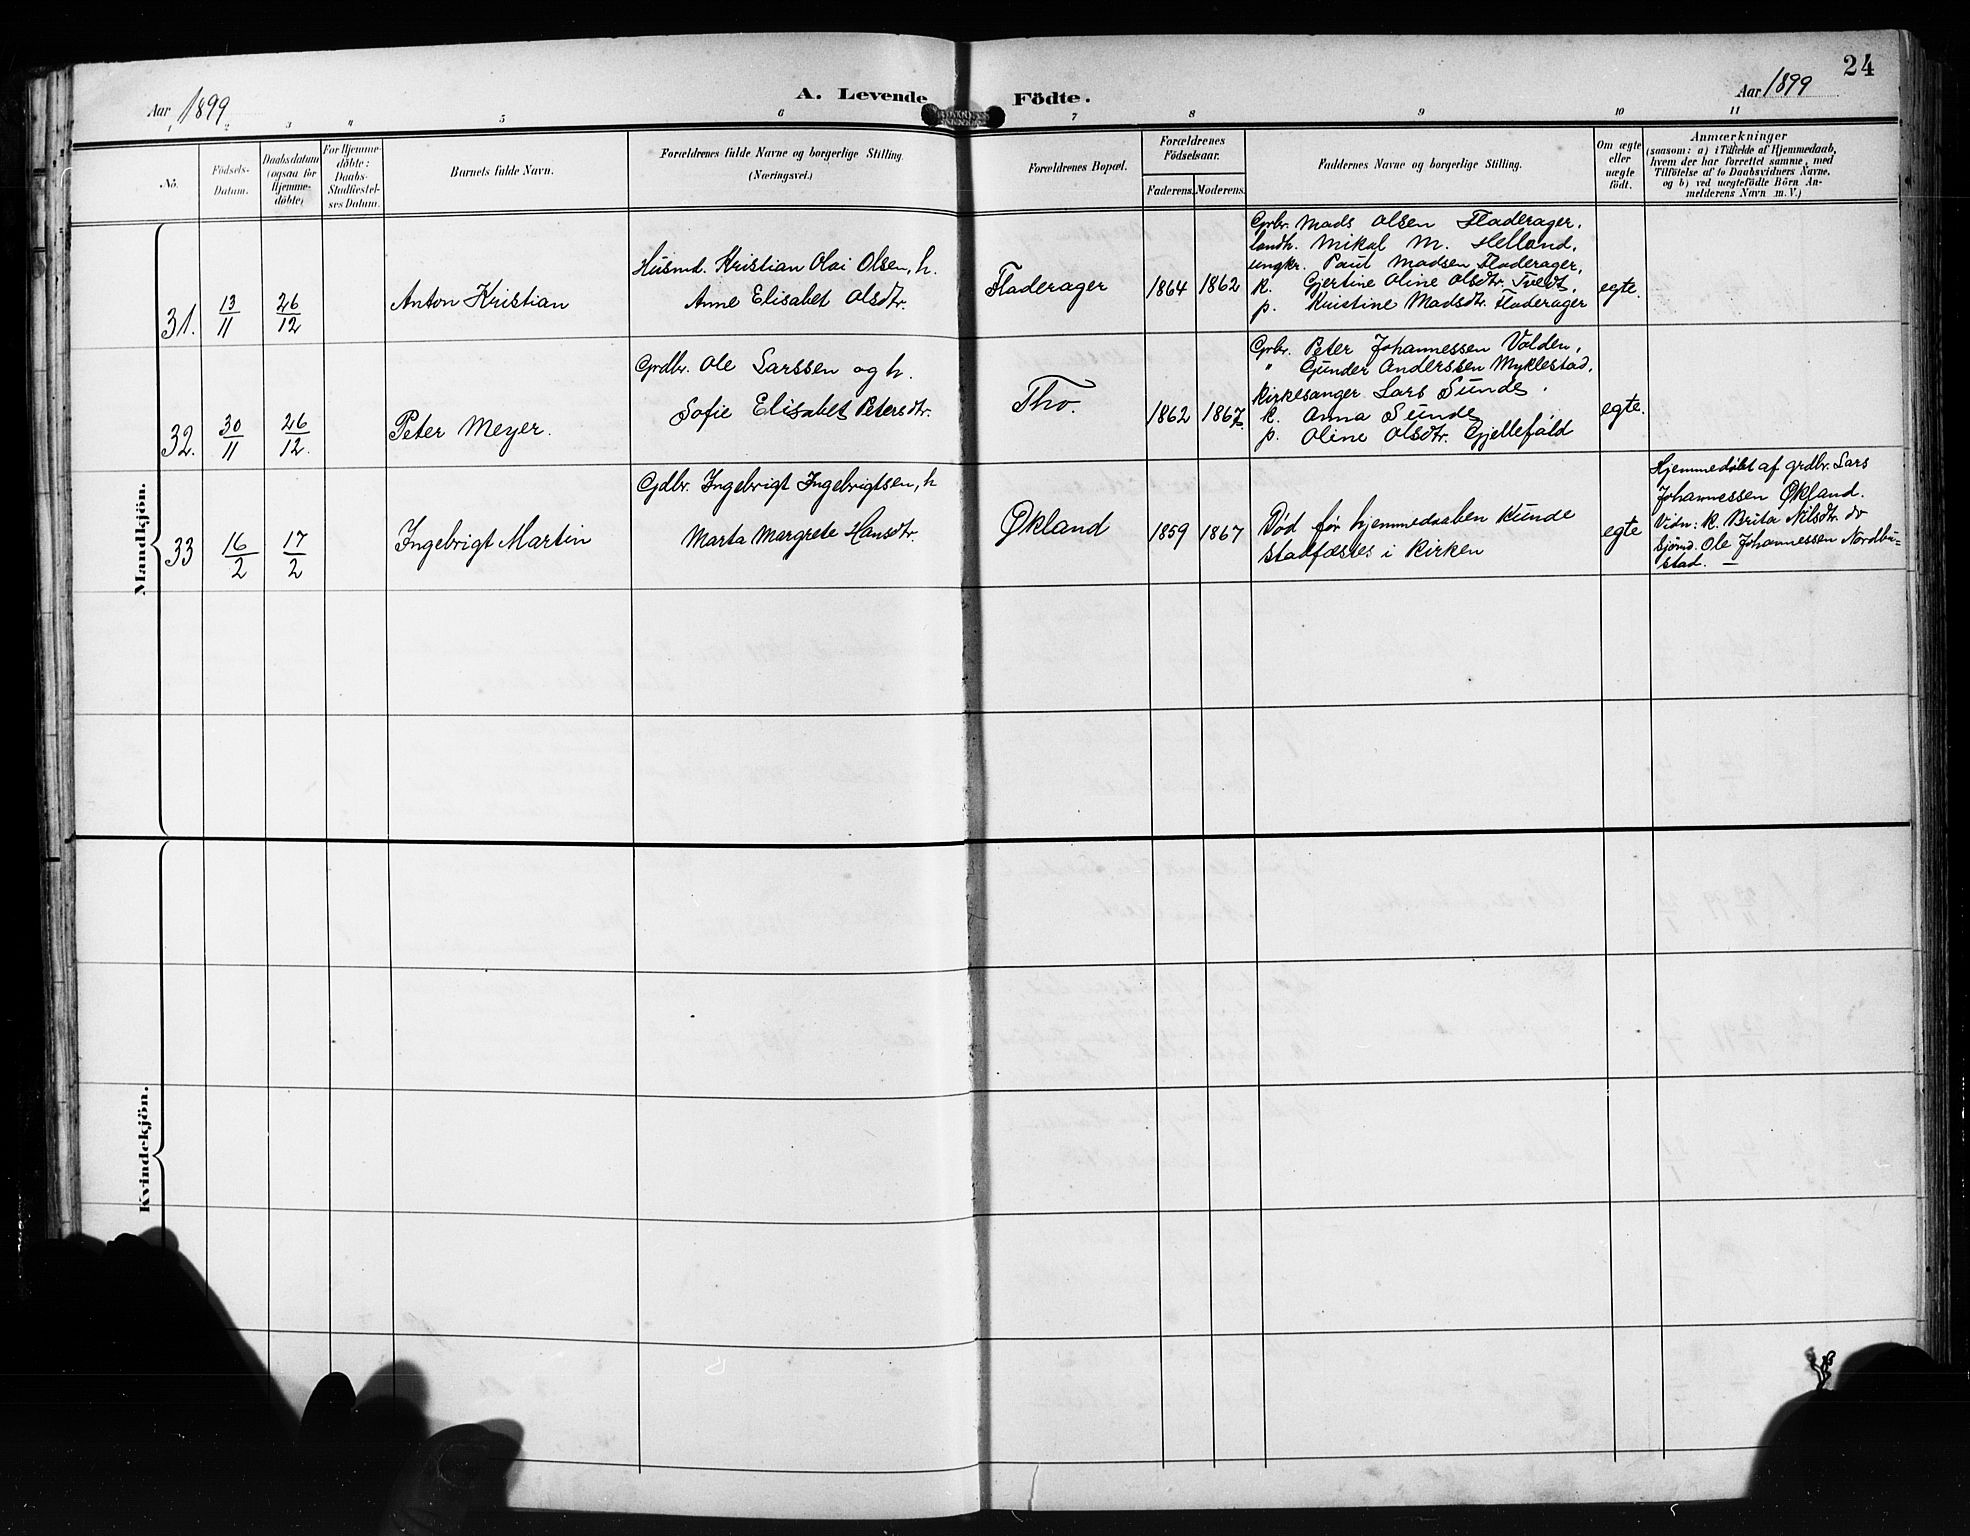 24
Aar 1899
A. Levende Födte.
Aar 1899
1 2 3 4 5 6 7 8 9 10 11
No.
Födsels-
Datum.
Daabsdatum
(ogsaa for
Hjemme-
döbte)
For Hjemme-
döbte:
Daabs-
Stadfæstel-
ses Datum.
Barnets fulde Navn.
Forældrenes fulde Navne og borgerlige Stilling.
(Næringsvei.)
Forældrenes Bopæl.
Forældrenes
Födselsaar.
Faderens. Moderens.
Faddernes Navne og borgerlige Stilling.
Om ægte
eller
uægte
födt.
Anmærkninger
(saasom: a) i Tilfælde af Hjemmedaab,
hvem der har forrettet samme, med
Tilföielse af to Daabsvidners Navne,
og b) ved uægtefödte Börn An-
melderens Navn m. V.)
Mandkjön.
31. 13/11 26/12
Anton Kristian
Husmd. Kristian Olai Olsen, h.
Anne Elisabet Olsdtr.
Fladerager
1864 1862
Grbr. Mads Olsen Fladerager,
landh. Mikal M. Helland,
ungkr. Paul Madsen Fladerager,
k. Gjertine Oline Olsdtr. Tvedt,
p. Kristine Madsdtr. Fladerager
egte.
32. 30/11 26/12.
Peter Meyer.
Grdbr. Ole Larssen og h.
Sofie Elisabet Petersdtr.
Tho.
1862 1867
Grbr. Peter Johannessen Valden,
" Gunder Anderssen Myklestad,
Kirkesanger Lars Sunde,
k. Anna Sunde
p. Oline Olsdtr. Gjellefald
egte.
33 16/2 17/2
Ingebrigt Martin
Gdbr. Ingebrigt Ingebrigtsen, h
Marta Margrete Hansdtr.
Økland
1859 1867
Död før hjemmedaaben kunde
stadfæstes i kirken
egte
Hjemmedøbt af grdbr. Lars
Johannessen Økland.
Vidn: k. Brita Nilsdtr. do
Sjømd. Ole Johannessen Nordbu-
stad. —
Kvindekjön.